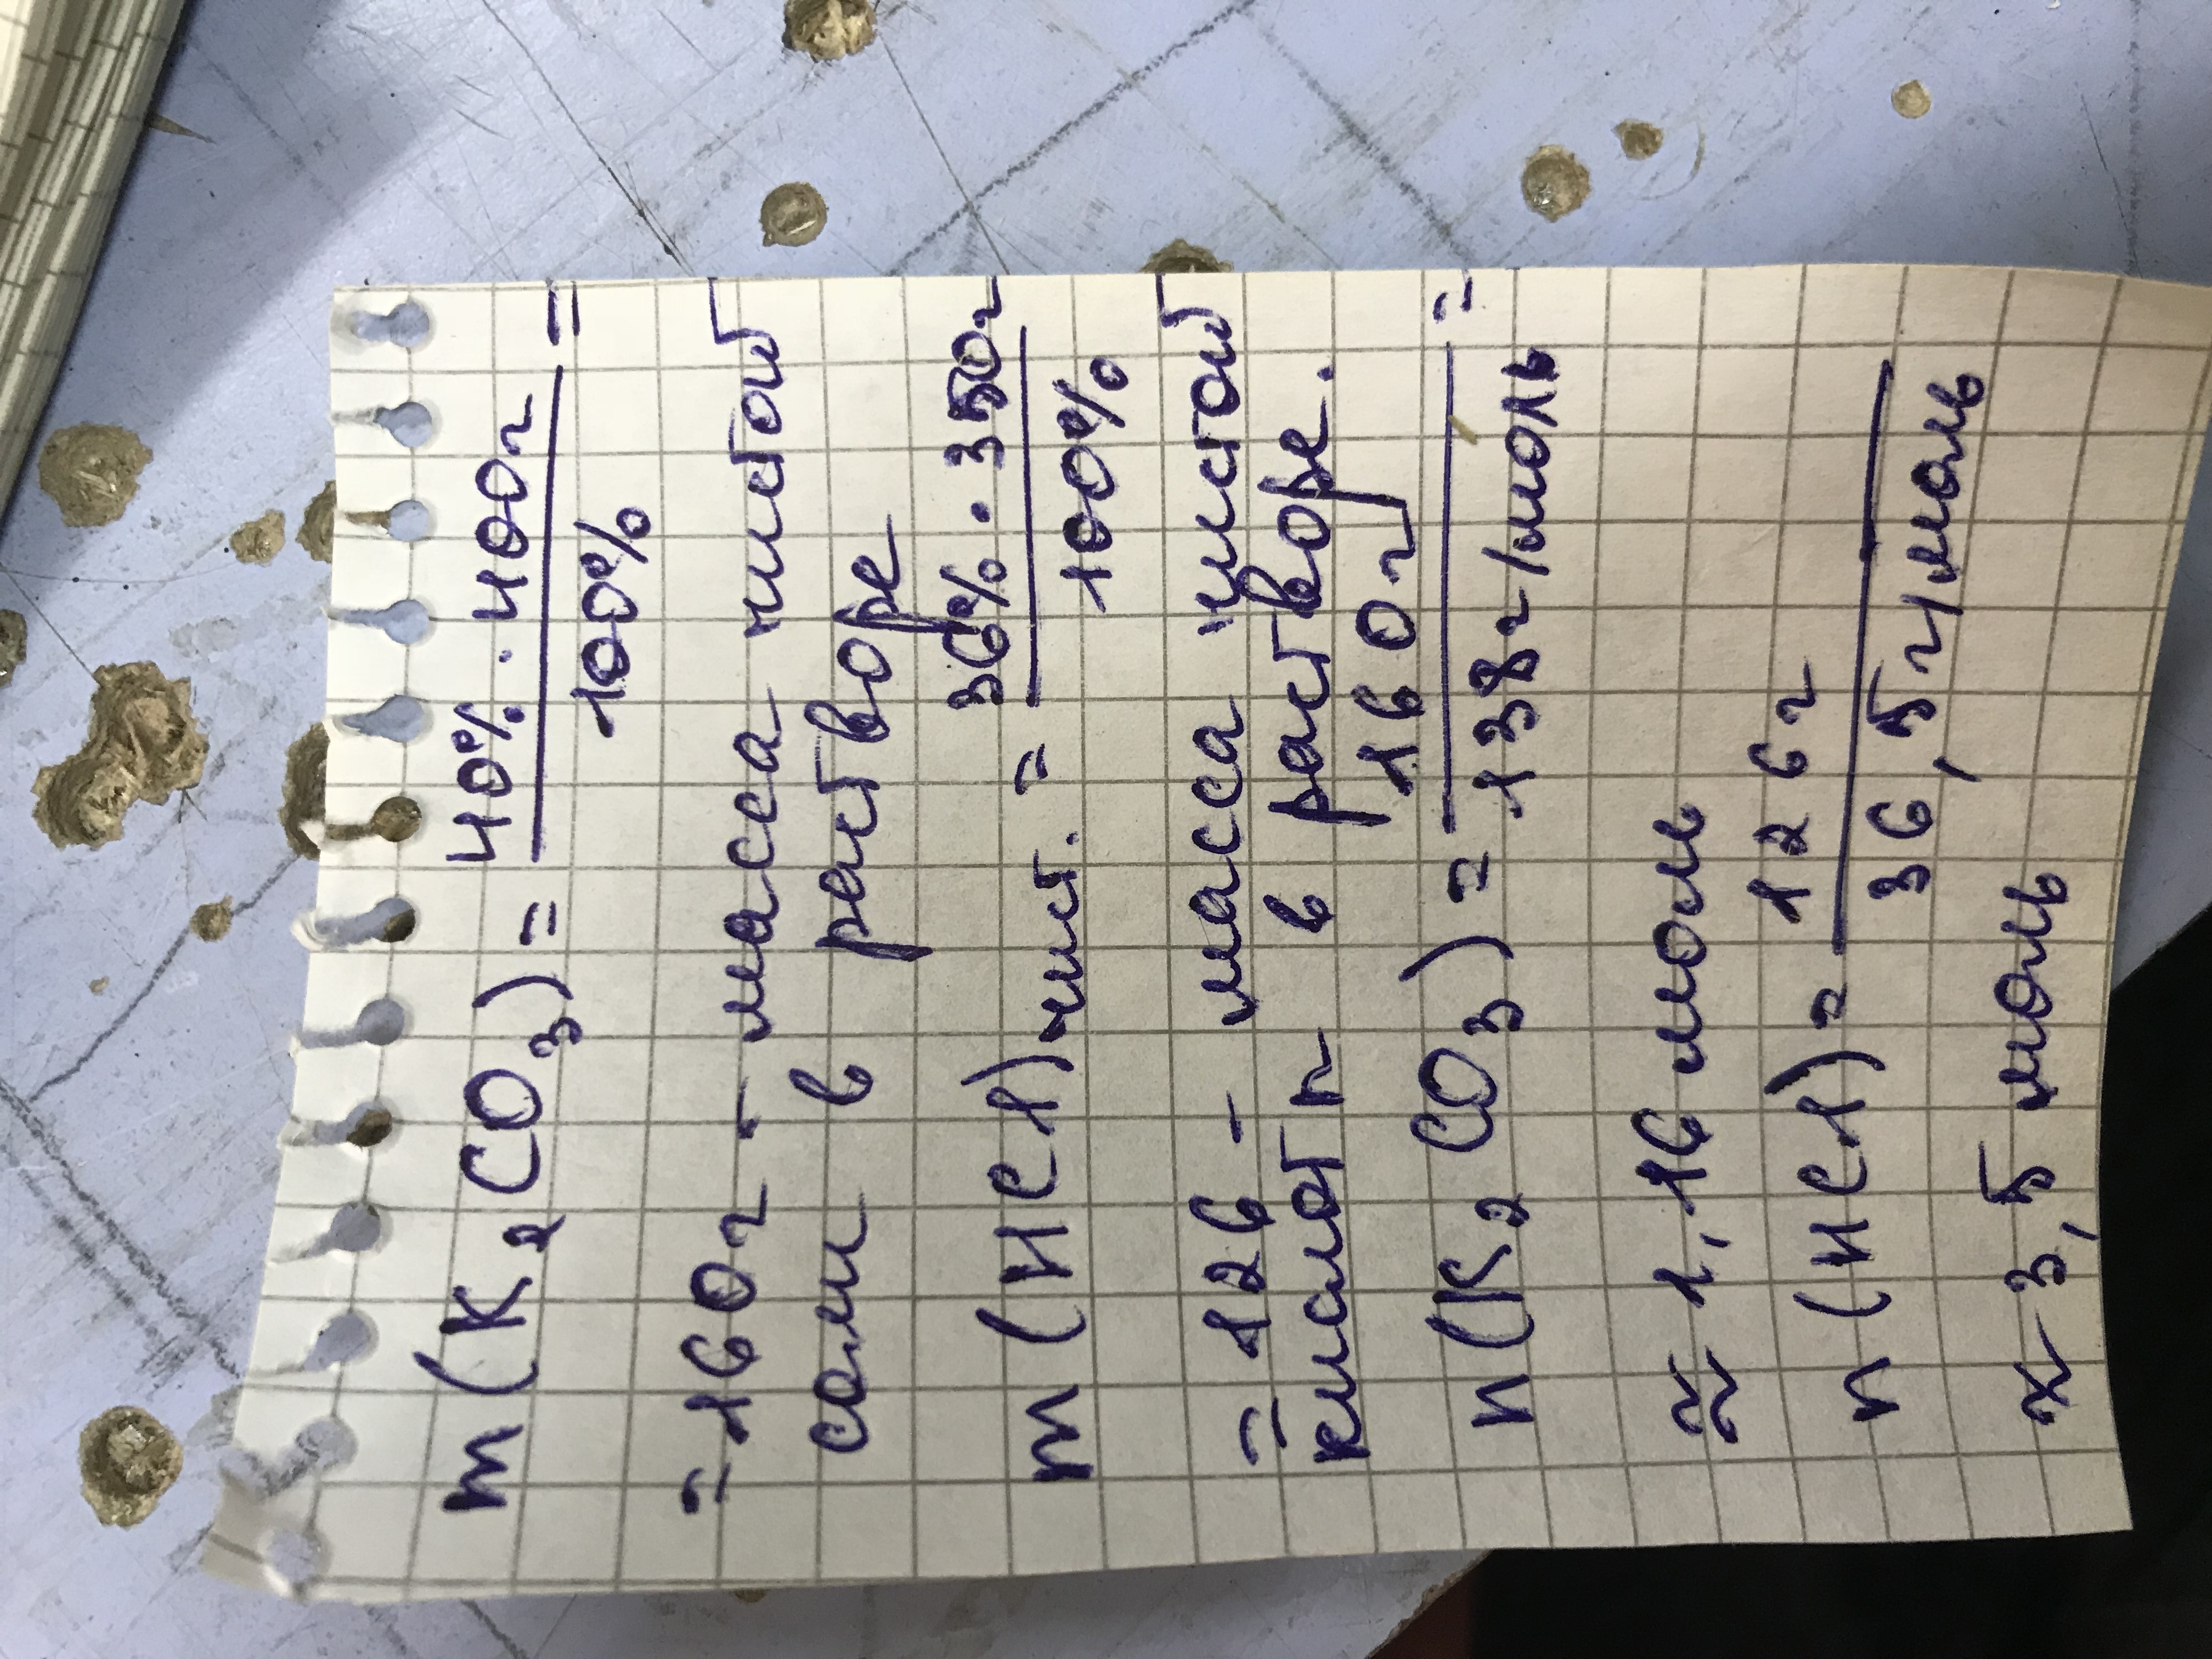 m(K₂CO₃) = 40% · 400г / 100% =
= 160г - масса чистой
соли в растворе
m(HCl)чист. = 36% · 350г / 100%
= 126 - масса чистой
кислоты в растворе.
n(K₂CO₃) = 160г / 138г/моль =
≈ 1,16 моль
n(HCl) = 126г / 36,5г/моль
≈ 3,5 моль